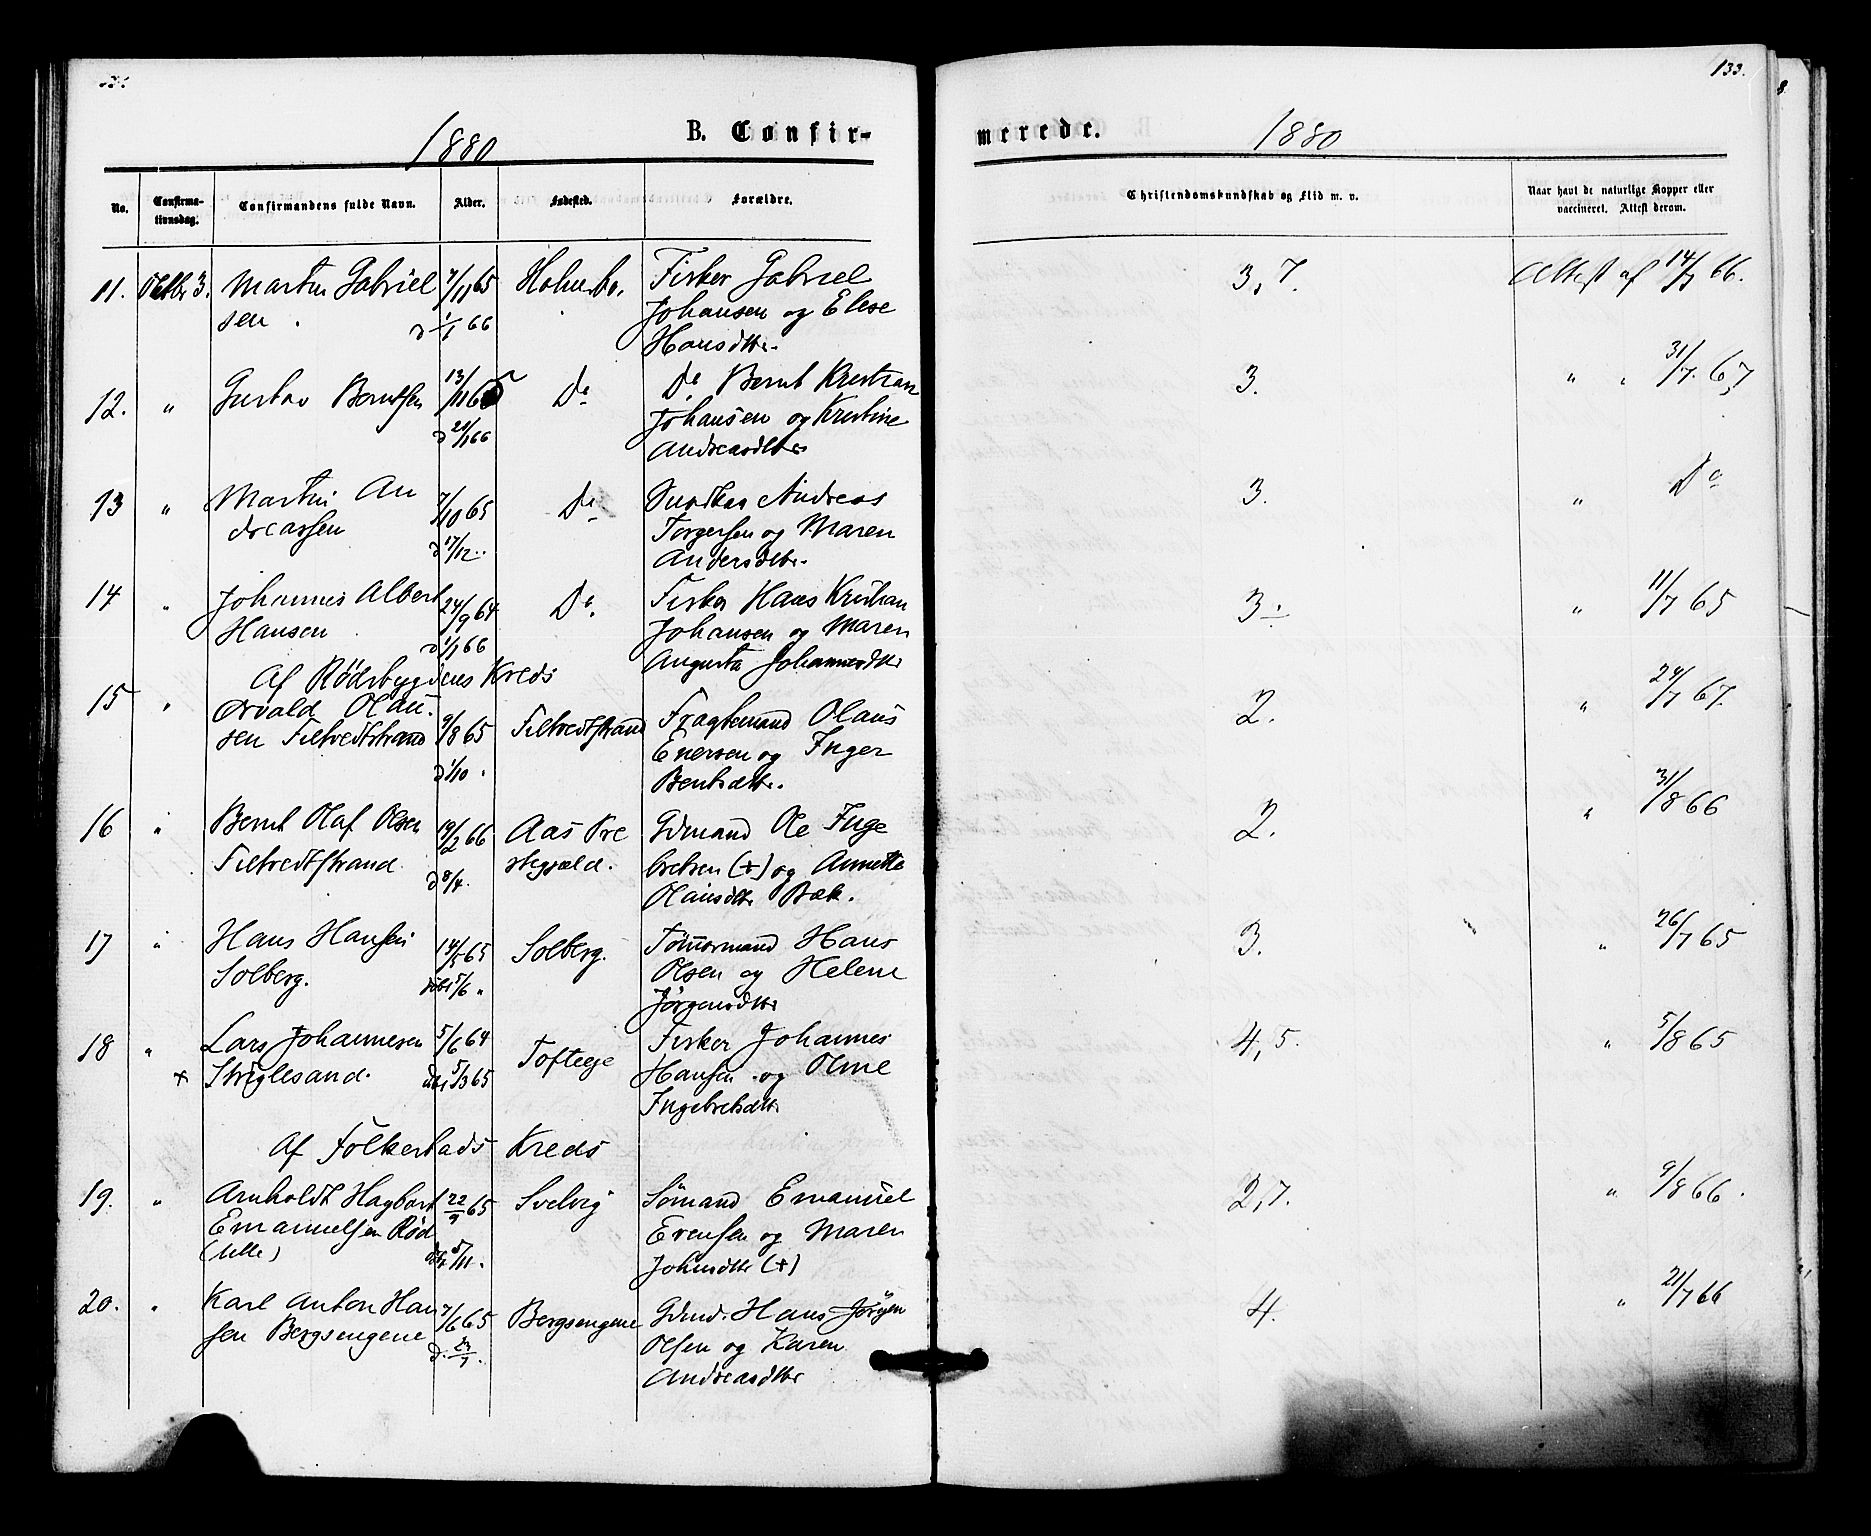 133.
1880 B. Confir-
merede. 1880
No. Confirma-
tionsdag. Confirmandens fulde Navn. Alder. Fødested. Forældre. Christendomskundskab og Flid m. v. Naar havt de naturlige Kopper eller
vaccineret. Attest derom.
11. Octbr 3. Martin Gabriel 7/11 65 Holmsbo. Fisker Gabriel 3,7. Attest af 14/7 66.
sen. d 1/1 66 Johansen og Elise
Hansdtr.
12. " Gustav Berntsen 13/11 65 Do Do Bernt Kristian 3. " " 31/7. 67
d 20/1 66 Johansen og Kristine
Andreasdtr
13 " Martin An 7/10 65 Do Andreas 3. " Do
dreassen d 17/12.. Torgersen og Maren
Andersdtr.
14 " Johannes Albert 24/9 64 Do. Fisker Hans Kristian 3 " 11/7 65
Hansen d 1/1 66 Johansen og Maren
Augusta Johannesdtr
Af Rødsbygdens Kreds
15 " Olau- 9/8 65 Filtvedtstrand Fragtemand Olaus 2. " 24/7 67.
sen Filtvedtstrand d 1/10. Enersen og Inger
Bentsdtr.
16 " Bernt Olaf Olsen 19/2 66 Aas Pre Gdmand Ole Inge 2. " 31/8 66
Filtvedtstrand d 8/4. stegjæld. bretsen (+) og Annette
Olausdtr Bæk.
17 " Hans Hansen 14/5 65 Solberg. Tømmermand Hans 3. " 26/7 65
Solberg. døbt 5/6 " Olsen og Helene
Jørgensdtr
18 " Lars Johannesen 5/6 64 Tofteeje Fisker Johannes 4,5. " 5/8 65
+ Striglesand. døbt 5/3 65 Hansen og Oline
Ingebretsdtr
Af Folkestads Kreds
19. " Arnholdt Hagbart 22/9 65 Svelvig Sømand Emanuel 2,7. " 9/8 66.
Emanuelsen Rød dbt 5/11. Evensen og Maren
(lille) Johnsdtr (+)
20. " Karl Anton Han 7/6 65 Bergsengene Gdmd. Hans Jörgen 4. " 21/7 66
sen Bergsengene d. 23/7. Olsen og Karen
Andreasdtr